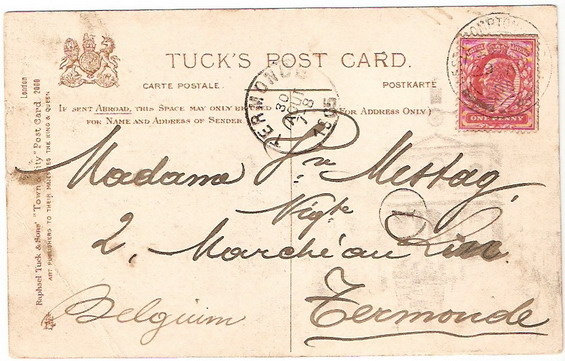 TUCK'S POST CARD.
CARTE POSTALE. POSTKARTE
IF SENT ABROAD, THIS SPACE MAY ONLY BE USED
FOR NAME AND ADDRESS OF SENDER.
(FOR ADDRESS ONLY)
TERMONDE
30
AOUT
18
1905
ONE PENNY
Raphael Tuck & Sons' "Town & City" Post Card. 2000
ART PUBLISHERS TO THEIR MAJESTIES THE KING & QUEEN
London
Madame Messtag,
2, Marché au Lin
Belgium
Termonde